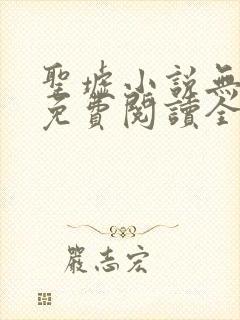 聖墟小說無
免費閱讀全
嚴志宏